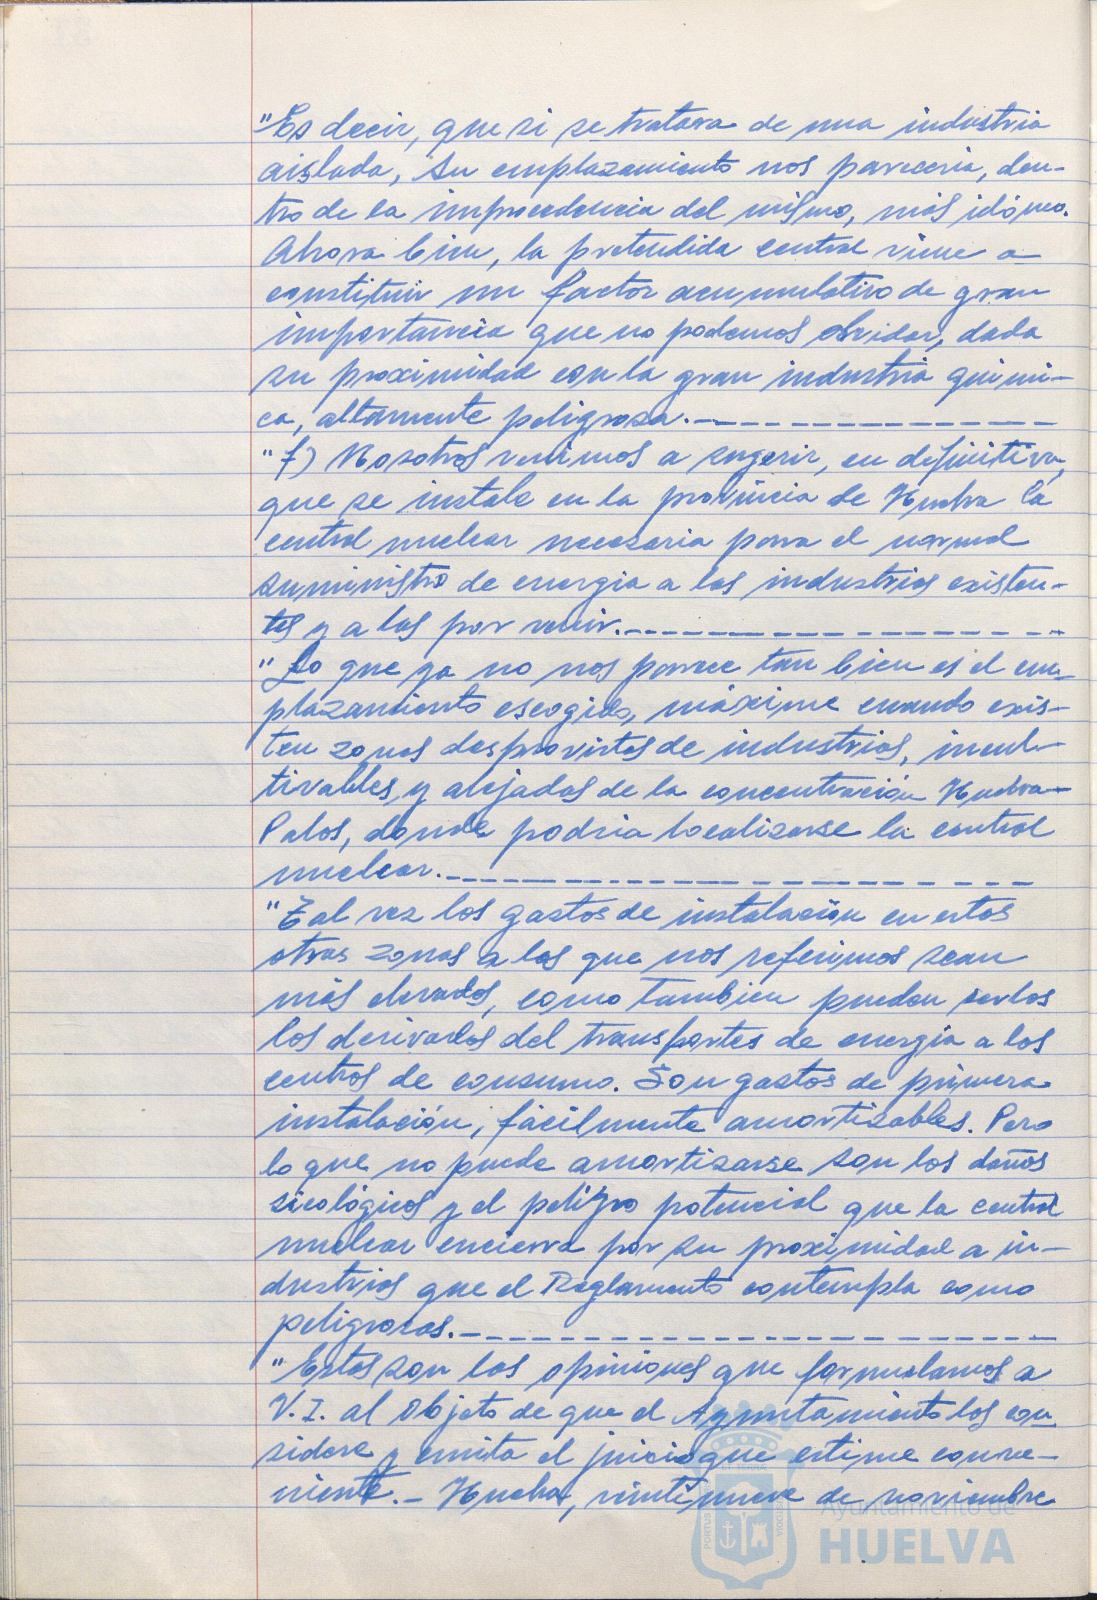 "Es decir, que si se tratara de una industria
aislada, su emplazamiento nos parecería, den-
tro de la improcedencia del mismo, más idóneo.
Ahora bien, la pretendida central viene a
constituir un factor acumulativo de gran
importancia que no podemos olvidar, dada
su proximidad con la gran industria quími-
ca, altamente peligrosa.-
"f) Nosotros venimos a sugerir, en definitiva,
que se instale en la provincia de Huelva la
central nuclear necesaria para el normal
suministro de energia a las industrias existen-
tes y a las por venir.-
"Lo que ya no nos parece tan bien es el em-
plazamiento escogido, máxime cuando exis-
ten zonas desprovistas de industrias, incul-
tivables y alejadas de la concentración Huelva-
Palos, donde podría localizarse la central
nuclear.-
"Tal vez los gastos de instalación en estas
otras zonas a las que nos referimos sean
más elevados, como tambien puedan serlos
los derivados del transportes de energía a los
centros de consumo. Son gastos de primera
instalación, fácilmente amortizables. Pero
lo que no puede amortizarse son los daños
sicológicos y el peligro potencial que la central
nuclear encierra por su proximidad a in-
dustrias que el Reglamento contempla como
peligrosas.-
"Estas son las opiniones que formulamos a
V.I. al objeto de que el Ayuntamiento los con
sidere y emita el juicio que estime conve-
niente.- Huelva, veintinueve de noviembre
Ayuntamiento de
HUELVA